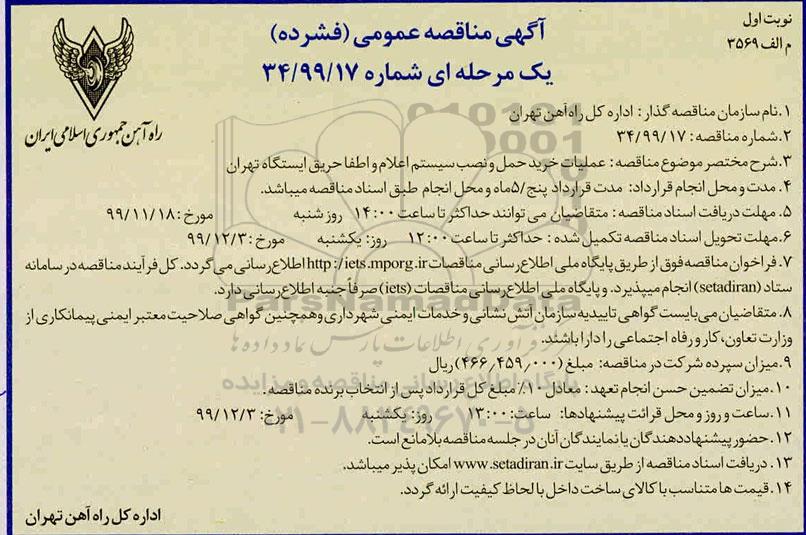 نوبت اول
م الف ۳۵۶۹
آگهی مناقصه عمومی (فشرده)
یک مرحله ای شماره ۳۴/۹۹/۱۷
راه آهن جمهوری اسلامی ایران
۱. نام سازمان مناقصه گذار : اداره کل راه آهن تهران
۲. شماره مناقصه : ۳۴/۹۹/۱۷
۳. شرح مختصر موضوع مناقصه : عملیات خرید حمل و نصب سیستم اعلام و اطفا حریق ایستگاه تهران
۴. مدت و محل انجام قرارداد: مدت قرارداد پنج/۵ماه و محل انجام طبق اسناد مناقصه میباشد.
۵. مهلت دریافت اسناد مناقصه : متقاضیان می توانند حداکثر تا ساعت ۱۴:۰۰ روز شنبه مورخ: ۹۹/۱۱/۱۸
۶. مهلت تحویل اسناد مناقصه تکمیل شده : حداکثر تا ساعت ۱۲:۰۰ روز: یکشنبه مورخ: ۹۹/۱۲/۳
۷. فراخوان مناقصه فوق از طریق پایگاه ملی اطلاع رسانی مناقصات http://iets.mporg.ir اطلاع رسانی می گردد. کل فرآیند مناقصه در سامانه
ستاد (setadiran) انجام میپذیرد. و پایگاه ملی اطلاع رسانی مناقصات (iets) صرفاً جنبه اطلاع رسانی دارد.
۸. متقاضیان می بایست گواهی تاییدیه سازمان آتش نشانی و خدمات ایمنی شهرداری و همچنین گواهی صلاحیت معتبر ایمنی پیمانکاری از
وزارت تعاون، کار و رفاه اجتماعی را دارا باشند.
۹. میزان سپرده شرکت در مناقصه: مبلغ (۴۶۶,۴۵۹,۰۰۰) ریال
۱۰. میزان تضمین حسن انجام تعهد: معادل ۱۰٪ مبلغ کل قرارداد پس از انتخاب برنده مناقصه.
۱۱. ساعت و روز و محل قرائت پیشنهادها: ساعت: ۱۳:۰۰ روز: یکشنبه مورخ: ۹۹/۱۲/۳
۱۲. حضور پیشنهاددهندگان یا نمایندگان آنان در جلسه مناقصه بلامانع است.
۱۳. دریافت اسناد مناقصه از طریق سایت www.setadiran.ir امکان پذیر میباشد.
۱۴. قیمت ها متناسب با کالای ساخت داخل با لحاظ کیفیت ارائه گردد.
اداره کل راه آهن تهران
ParsNamadData
پایگاه اطلاع رسانی مناقصه و مزایده
۰۲۱-۸۸۳۴۹۶۷۰-۵